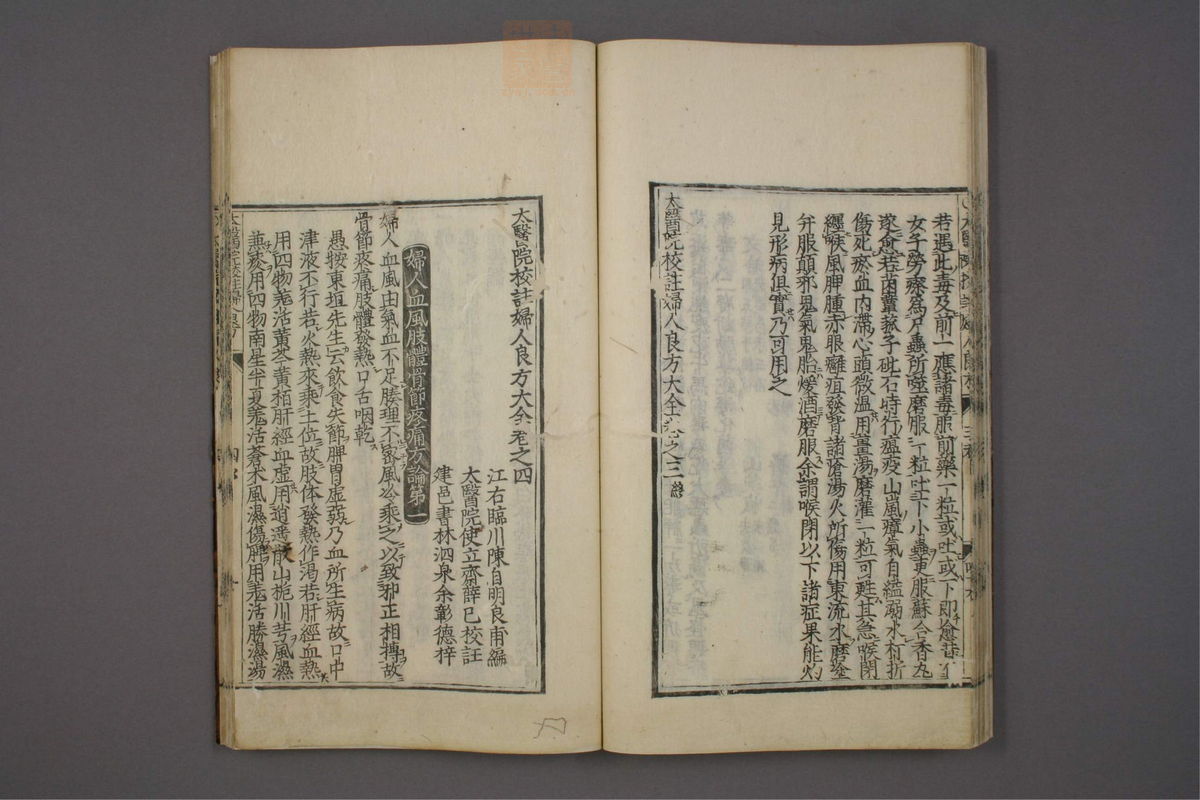 若遇此毒及前一應諸毒服前藥一粒或吐或下即愈昔有
女子勞瘵爲尸蟲所噬磨服一粒吐下小蟲更服蘇合香丸
遂愈若菌蕈菰子砒石時行瘟疫山嵐瘴氣自縊溺水打折
傷死瘀血内滯心頭微温用薑湯磨灌一粒可甦其急喉閉
纏喉風脾腫赤眼癰疽發背諸瘡湯火所傷用東流水磨塗
并服顛邪鬼氣鬼胎煖酒磨服余謂喉閉以下諸症果能灼
見形病俱實乃可用之
太醫院校註婦人良方大全卷之三 終
太醫院校註婦人良方大全卷之四
江右臨川陳自明良甫編
太醫院使立齋薛已校註
建邑書林泗泉余彰德梓
婦人血風肢體骨節疼痛方論第一
婦人血風由氣血不足腠理不密風冷乘之以致邪正相搏故
骨節疼痛肢體發熱口舌咽乾
愚按東垣先生云飲食失節脾胃虚弱乃血所生病故口中
津液不行若火熱來乘土位故肢体發熱作渴若肝經血熱
用四物羗活黄芩黄栢肝經血虚用逍遥散山梔川芎風濕
兼痰用四物南星半夏羗活蒼术風濕傷脾用羗活勝濕湯